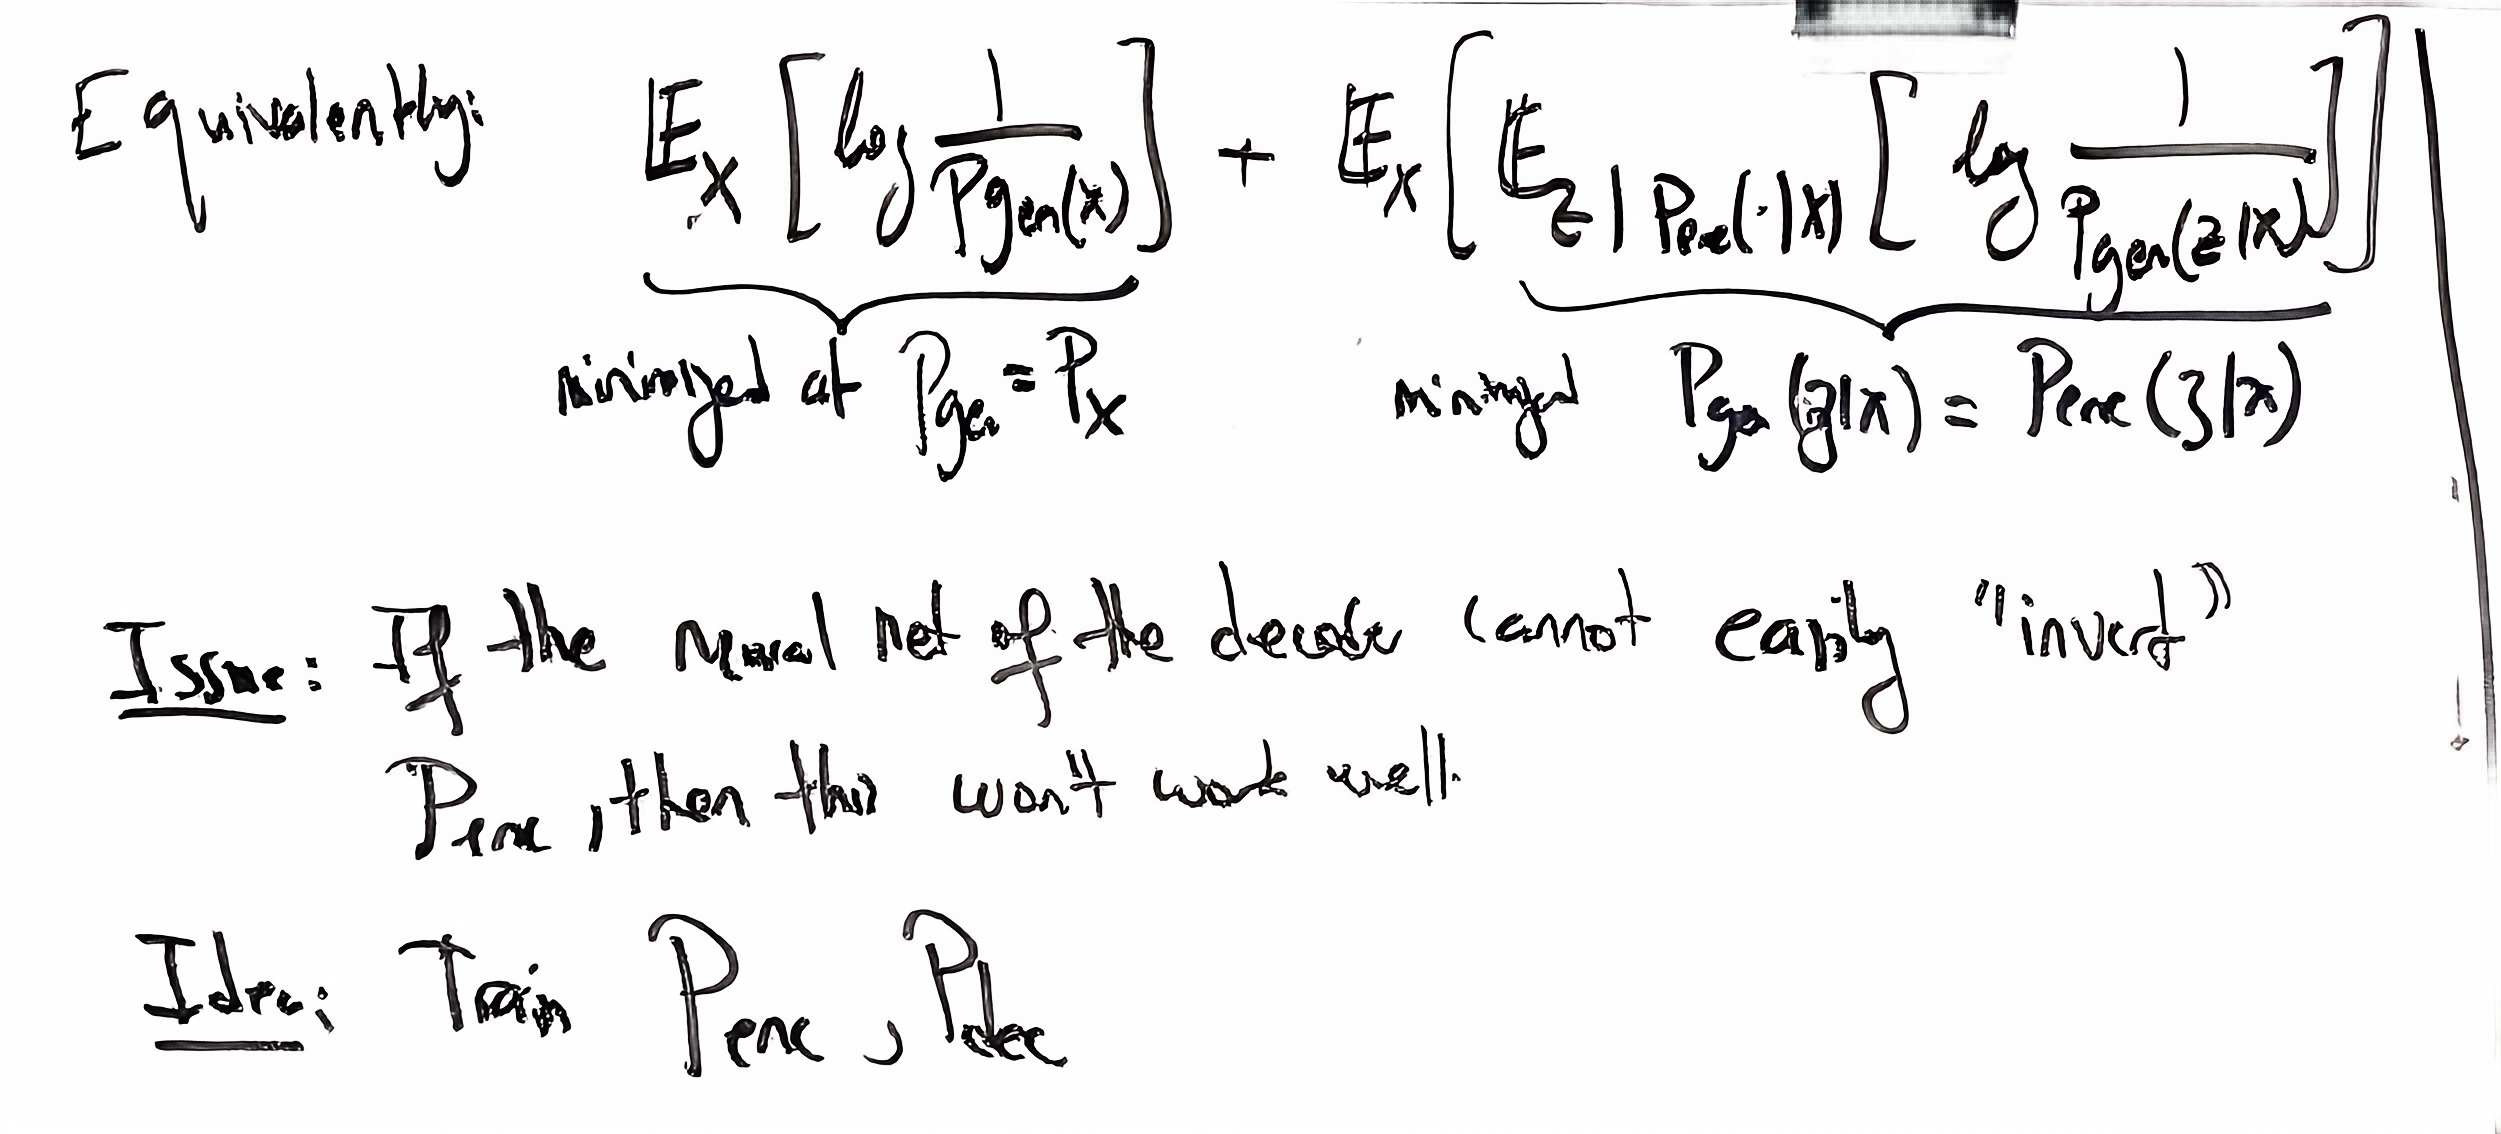 Equivalently: E_X [ log 1/P_gen(x) ] + E_X [ E_{Z|P_enc(·|X)} [ log 1/P_gen(z|X) ] ]
minimized at P_gen = P_X minimized P_gen(z|x) = P_enc(z|x)
Issue: If the neural net of the decoder cannot easily "invert"
P_enc, then this won't work well.
Idea: Train P_enc, P_dec